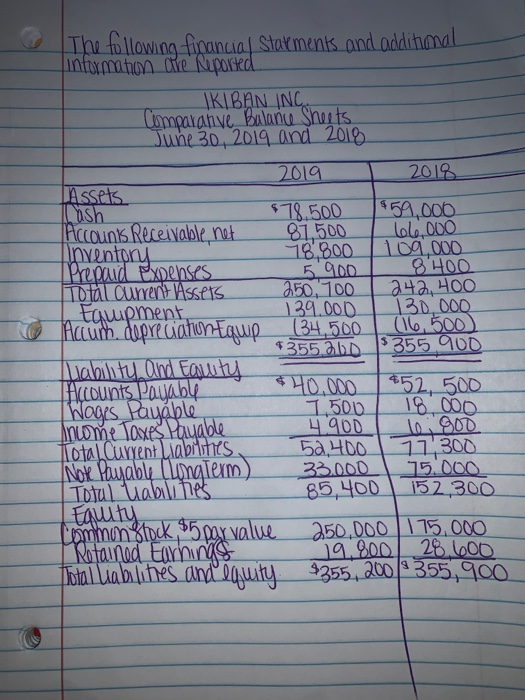 The following financial statements and additional
information are Reported
IKIBAN INC.
Comparative Balance Sheets
June 30, 2019 and 2018
2019 2018
Assets
Cash $78,500 $59,000
Accounts Receivable, net 87,500 66,000
Inventory 78,800 109,000
Prepaid Expenses 5,900 8400
Total Current Assets 250,700 242,400
Equipment 139.000 130,000
Accum. depreciation-Equip (34,500 (16,500)
$355,200 $355,900
Liability and Equity
Accounts Payable $40,000 $52,500
Wages Payable 7,500 18,000
Income Taxes Payable 4,900 6,800
Total Current Liabilities 52,400 77,300
Note Payable (long Term) 33,000 75,000
Total Liabilities 85,400 152,300
Equity
Common Stock, $5 par value 250,000 175.000
Retained Earnings 19,800 28,600
Total Liabilities and equity $355,200 $355,900